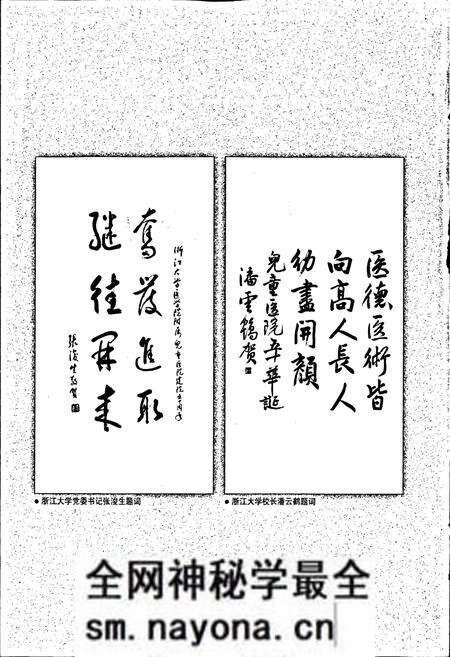 医德医術皆
向高人長人
幼盡開顔
兒童医院五十華誕
潘雲鶴賀
浙江大学医学院附属儿童医院建院五十周年
奮發進取
继往開来
张浚生敬贺
● 浙江大学党委书记张浚生题词
● 浙江大学校长潘云鹤题词
全网神秘学最全
sm.nayona.cn